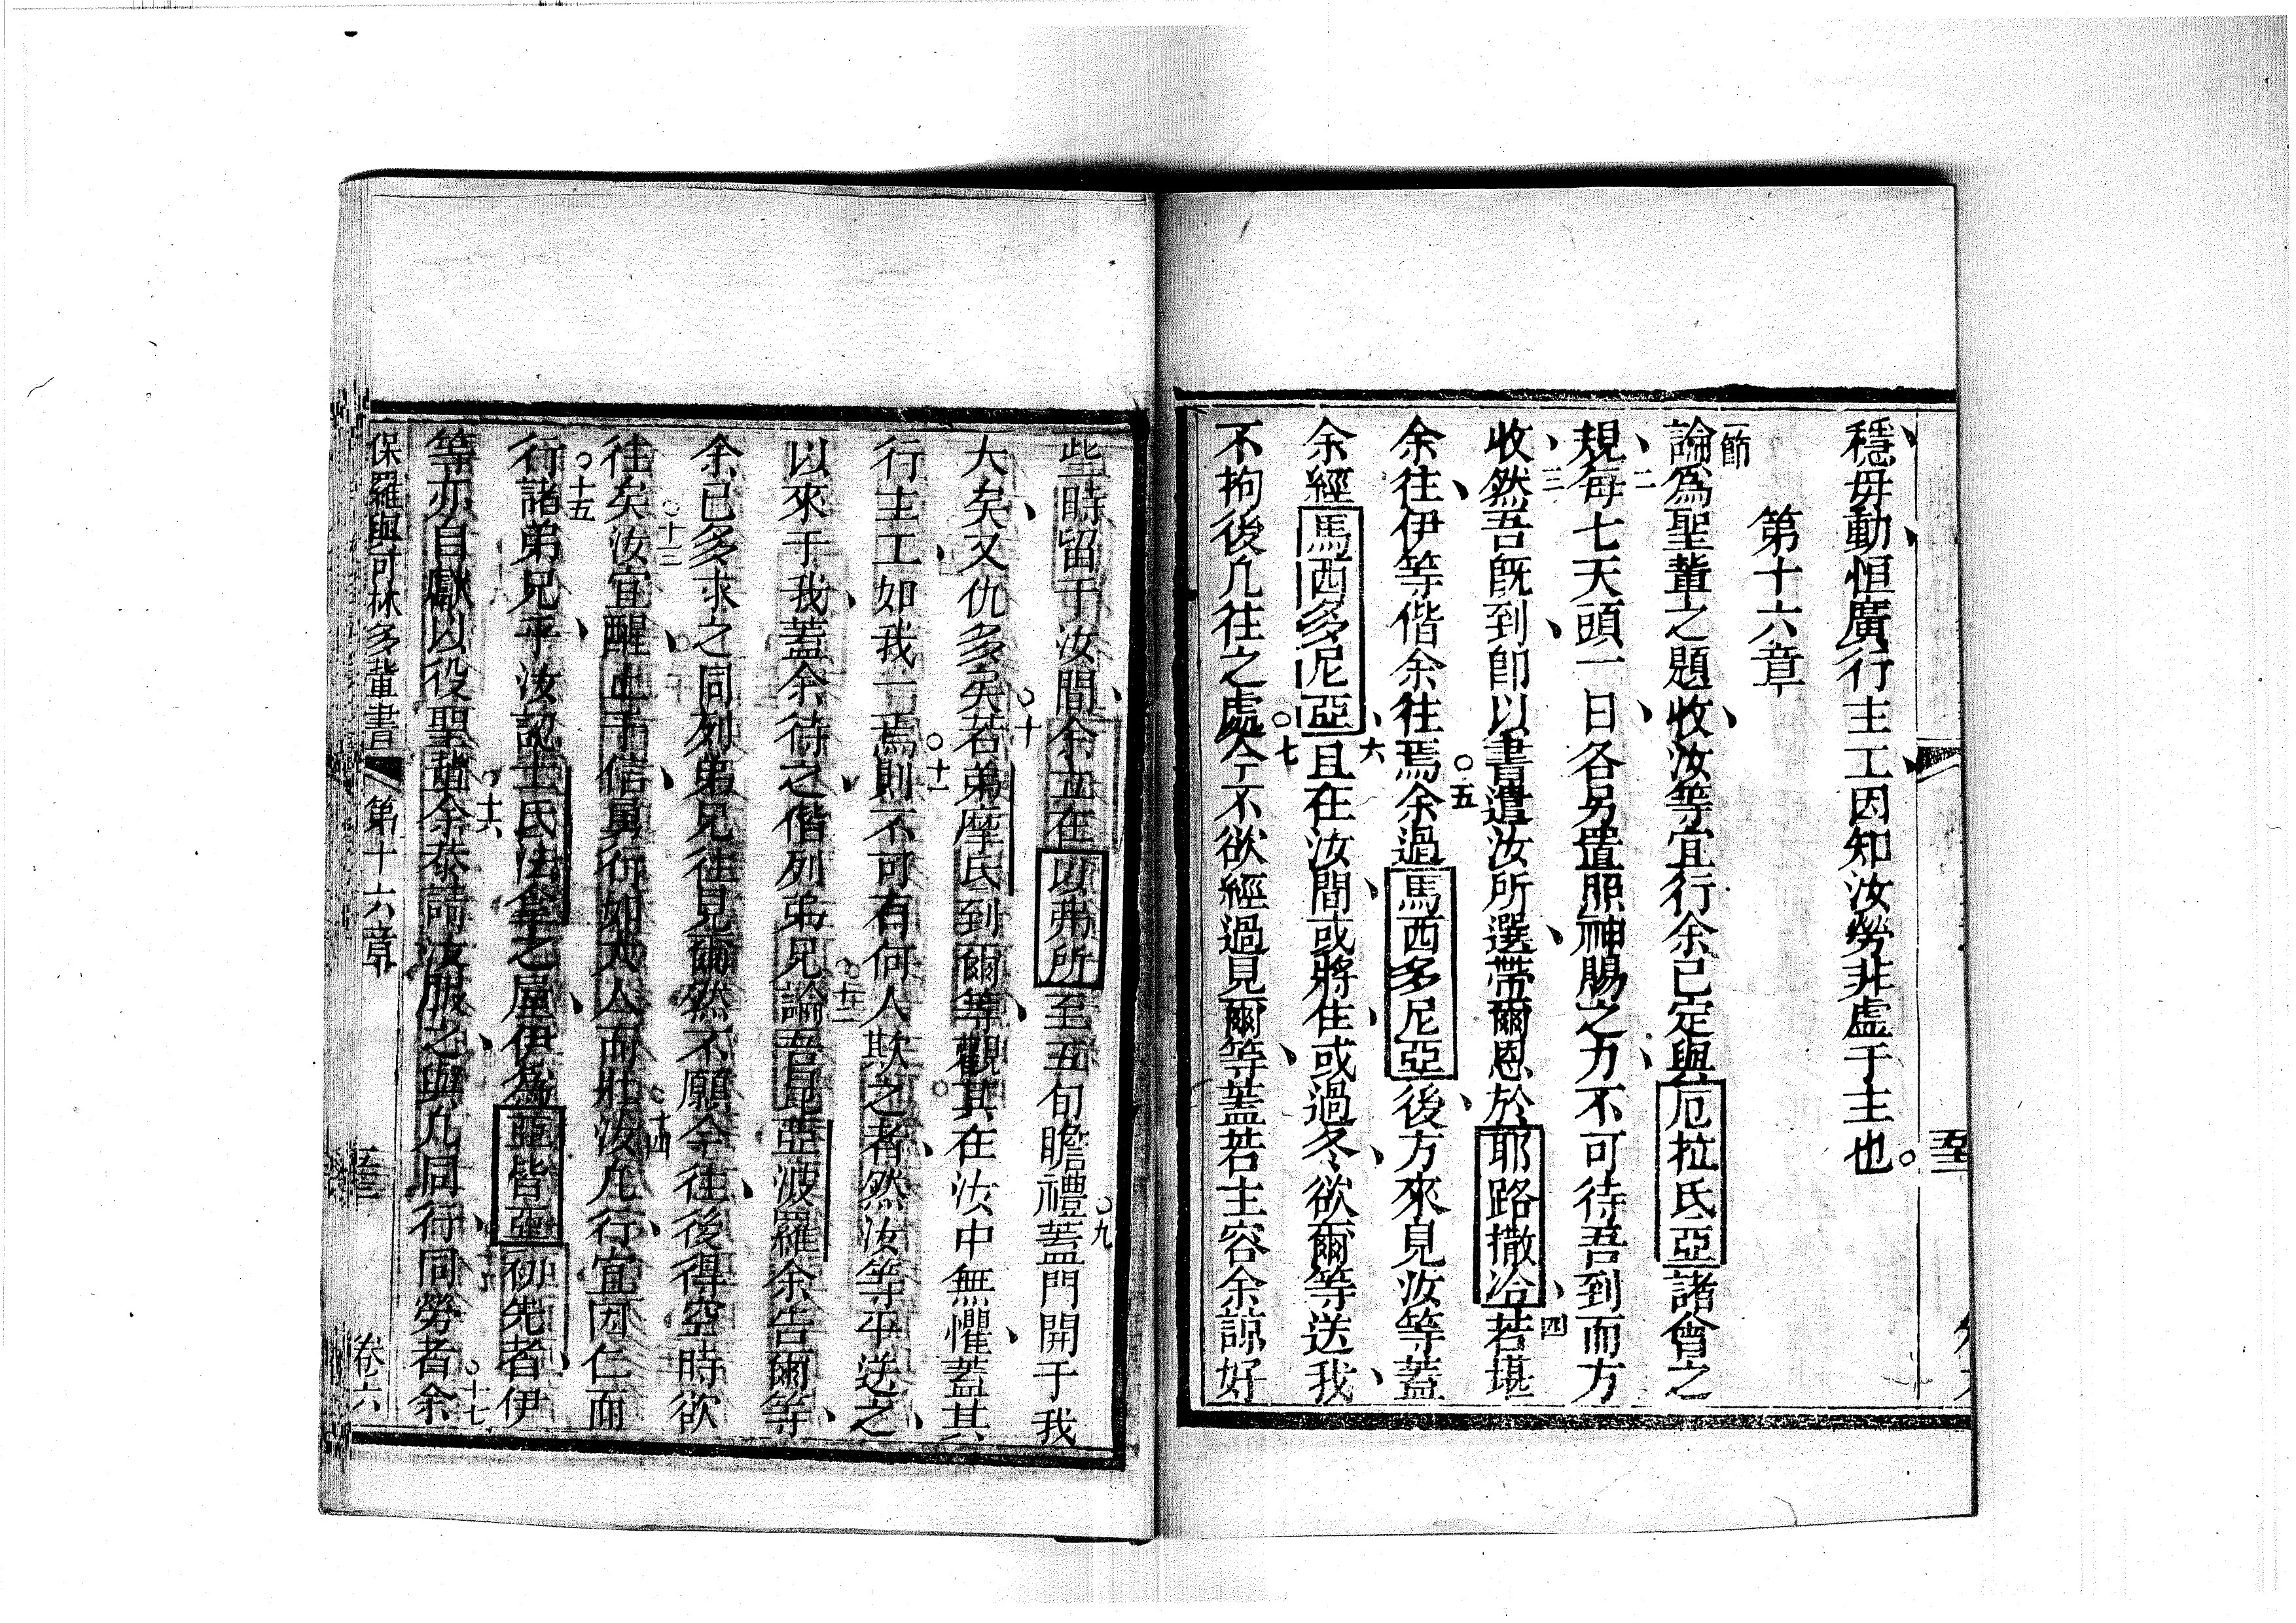 穩毋動恒廣行主工因知汝勞非虛于主也
第十六章
一節論爲聖輩之題收汝等宜行余已定與厄拉氏亞諸會之
規二每七天頭一日各另置照神賜之力不可待吾到而方
收三然吾旣到卽以書遣汝所選帶爾恩於耶路撒冾四若堪
余往伊等偕余往焉五余過馬西多尼亞後方來見汝等蓋
余經馬西多尼亞六且在汝間或將住或過冬欲爾等送我
不拘後凡往之處七今不欲經過見爾等蓋若主容余諒好
些時留于汝間余立在以弗所至五旬瞻禮九蓋門開于我
大矣又仇多矣十若弟摩氏到爾等觀其在汝中無懼蓋其
行主工如我一焉十一則不可有何人欺之者然汝等平送之
以來于我蓋余待之偕列弟兄十二論吾昆亞波羅余告爾等
余已多求之同列弟兄往見爾然不願今往後得空時欲
往矣十三汝宜醒止于信勇行如大人而壯十四汝凡行宜因仁而
行十五諸弟兄乎汝認士氏法拿之屋伊爲亞皆亞初先者伊
等亦自獻以役聖輩十六余恭請汝服之與凡同行同勞者十七余
保羅與可林多輩書 第十六章 卷六